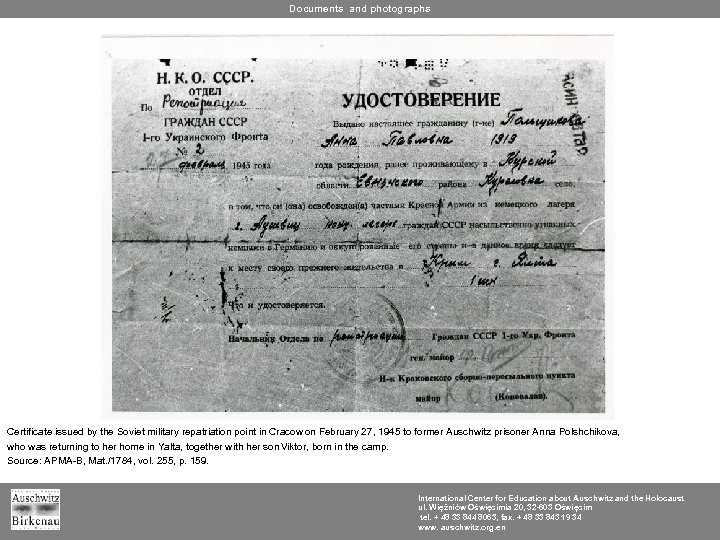 Documents and photographs
Н. К. О. СССР.
ОТДЕЛ
По Репатриации
ГРАЖДАН СССР
1-го Украинского Фронта
№ 2
февраль 1945 года
УДОСТОВЕРЕНИЕ
Выдано настоящее гражданину (г-ке)
Анна Павловна 1919
года рождения, ранее проживающему в Курской
области района село,
в том, что он (она) освобожден(а) частями Красной Армии из немецкого лагеря
г. граждан СССР насильственно угнанных
немцами в Германию и оккупированные его страны и в данное время следует
к месту своего прежнего жительства в Крым г. Ялта
Что и удостоверяется.
Начальник Отдела по репатриации Граждан СССР 1-го Укр. Фронта
ген. майор
Н-к Краковского сборно-пересыльного пункта
майор (Коновалов).
Certificate issued by the Soviet military repatriation point in Cracow on February 27, 1945 to former Auschwitz prisoner Anna Polshchikova,
who was returning to her home in Yalta, together with her son Viktor, born in the camp.
Source: APMA-B, Mat./1784, vol. 255, p. 159.
Auschwitz
Birkenau
International Center for Education about Auschwitz and the Holocaust
ul. Więźniów Oświęcimia 20, 32-603 Oświęcim
tel. + 48 33 8448063, fax. + 48 33 843 19 34
www. auschwitz.org.en